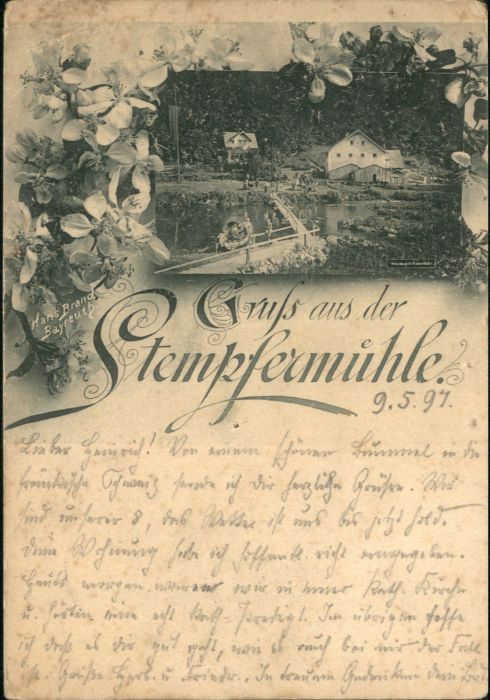 Stempfermühle
Hans Brand
Bayreuth
Gruss aus der
Stempfermühle.
9.5.97.
Lieber Heinrich! Von einem schönen Bummel in die
fränkische Schweiz sende ich dir herzliche Grüsse. Wir
sind unserer 8, das Wetter ist uns bis jetzt hold.
Deine Wohnung habe ich hoffentl. richt angegeben.
Heute morgen waren wir in einer kath. Kirche
u. hörten eine echt kath. Predigt. Im übrigen hoffe
ich dass es dir gut geht, wie es auch bei mir der Fall
ist. Grüsse u. In treuem Gedenken dein